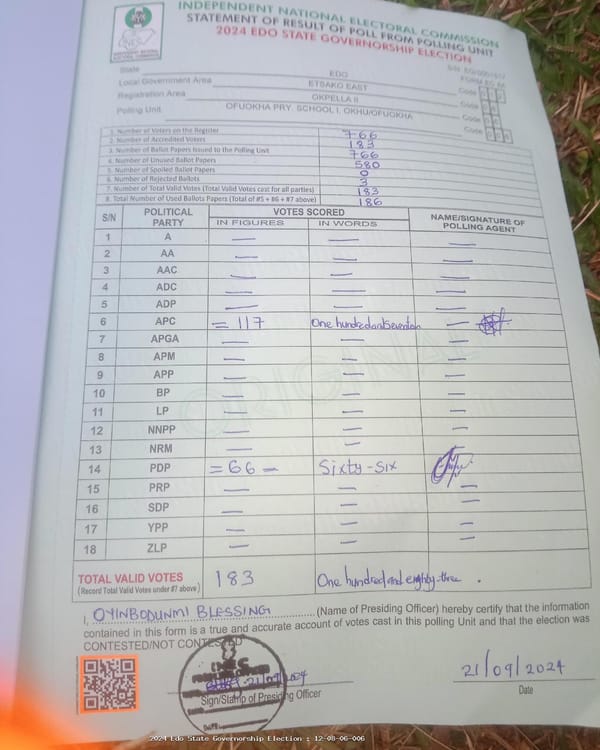 INDEPENDENT NATIONAL ELECTORAL COMMISSION
STATEMENT OF RESULT OF POLL FROM POLLING UNIT
2024 EDO STATE GOVERNORSHIP ELECTION
State EDO
Local Government Area ETSAKO EAST Code
Registration Area OKPELLA II Code
Polling Unit OFUOKHA PRY. SCHOOL I, OKHU/OFUOKHA Code
1. Number of Voters on the Register 766
2. Number of Accredited Voters 183
3. Number of Ballot Papers Issued to the Polling Unit 766
4. Number of Unused Ballot Papers 580
5. Number of Spoiled Ballot Papers 0
6. Number of Rejected Ballots 3
7. Number of Total Valid Votes (Total Valid Votes cast for all parties) 183
8. Total Number of Used Ballots Papers (Total of #5 + #6 + #7 above) 186
S/N POLITICAL PARTY VOTES SCORED NAME/SIGNATURE OF POLLING AGENT
IN FIGURES IN WORDS
1 A — — —
2 AA — — —
3 AAC — — —
4 ADC — — —
5 ADP — — —
6 APC = 117 One hundred and Seventeen —
7 APGA — — —
8 APM — — —
9 APP — — —
10 BP — — —
11 LP — — —
12 NNPP — — —
13 NRM — — —
14 PDP = 66 — Sixty-Six
15 PRP — — —
16 SDP — — —
17 YPP — — —
18 ZLP — — —
ORIGINAL
TOTAL VALID VOTES 183 One hundred and eighty-three.
(Record Total Valid Votes under #7 above)
I, OYINBODUNMI BLESSING (Name of Presiding Officer) hereby certify that the information
contained in this form is a true and accurate account of votes cast in this polling Unit and that the election was
CONTESTED/NOT CONTESTED
INEC
PRESIDING OFFICER
21/09/2024
Sign/Stamp of Presiding Officer
21/09/2024
Date
2024 Edo State Governorship Election : 12-08-06-006